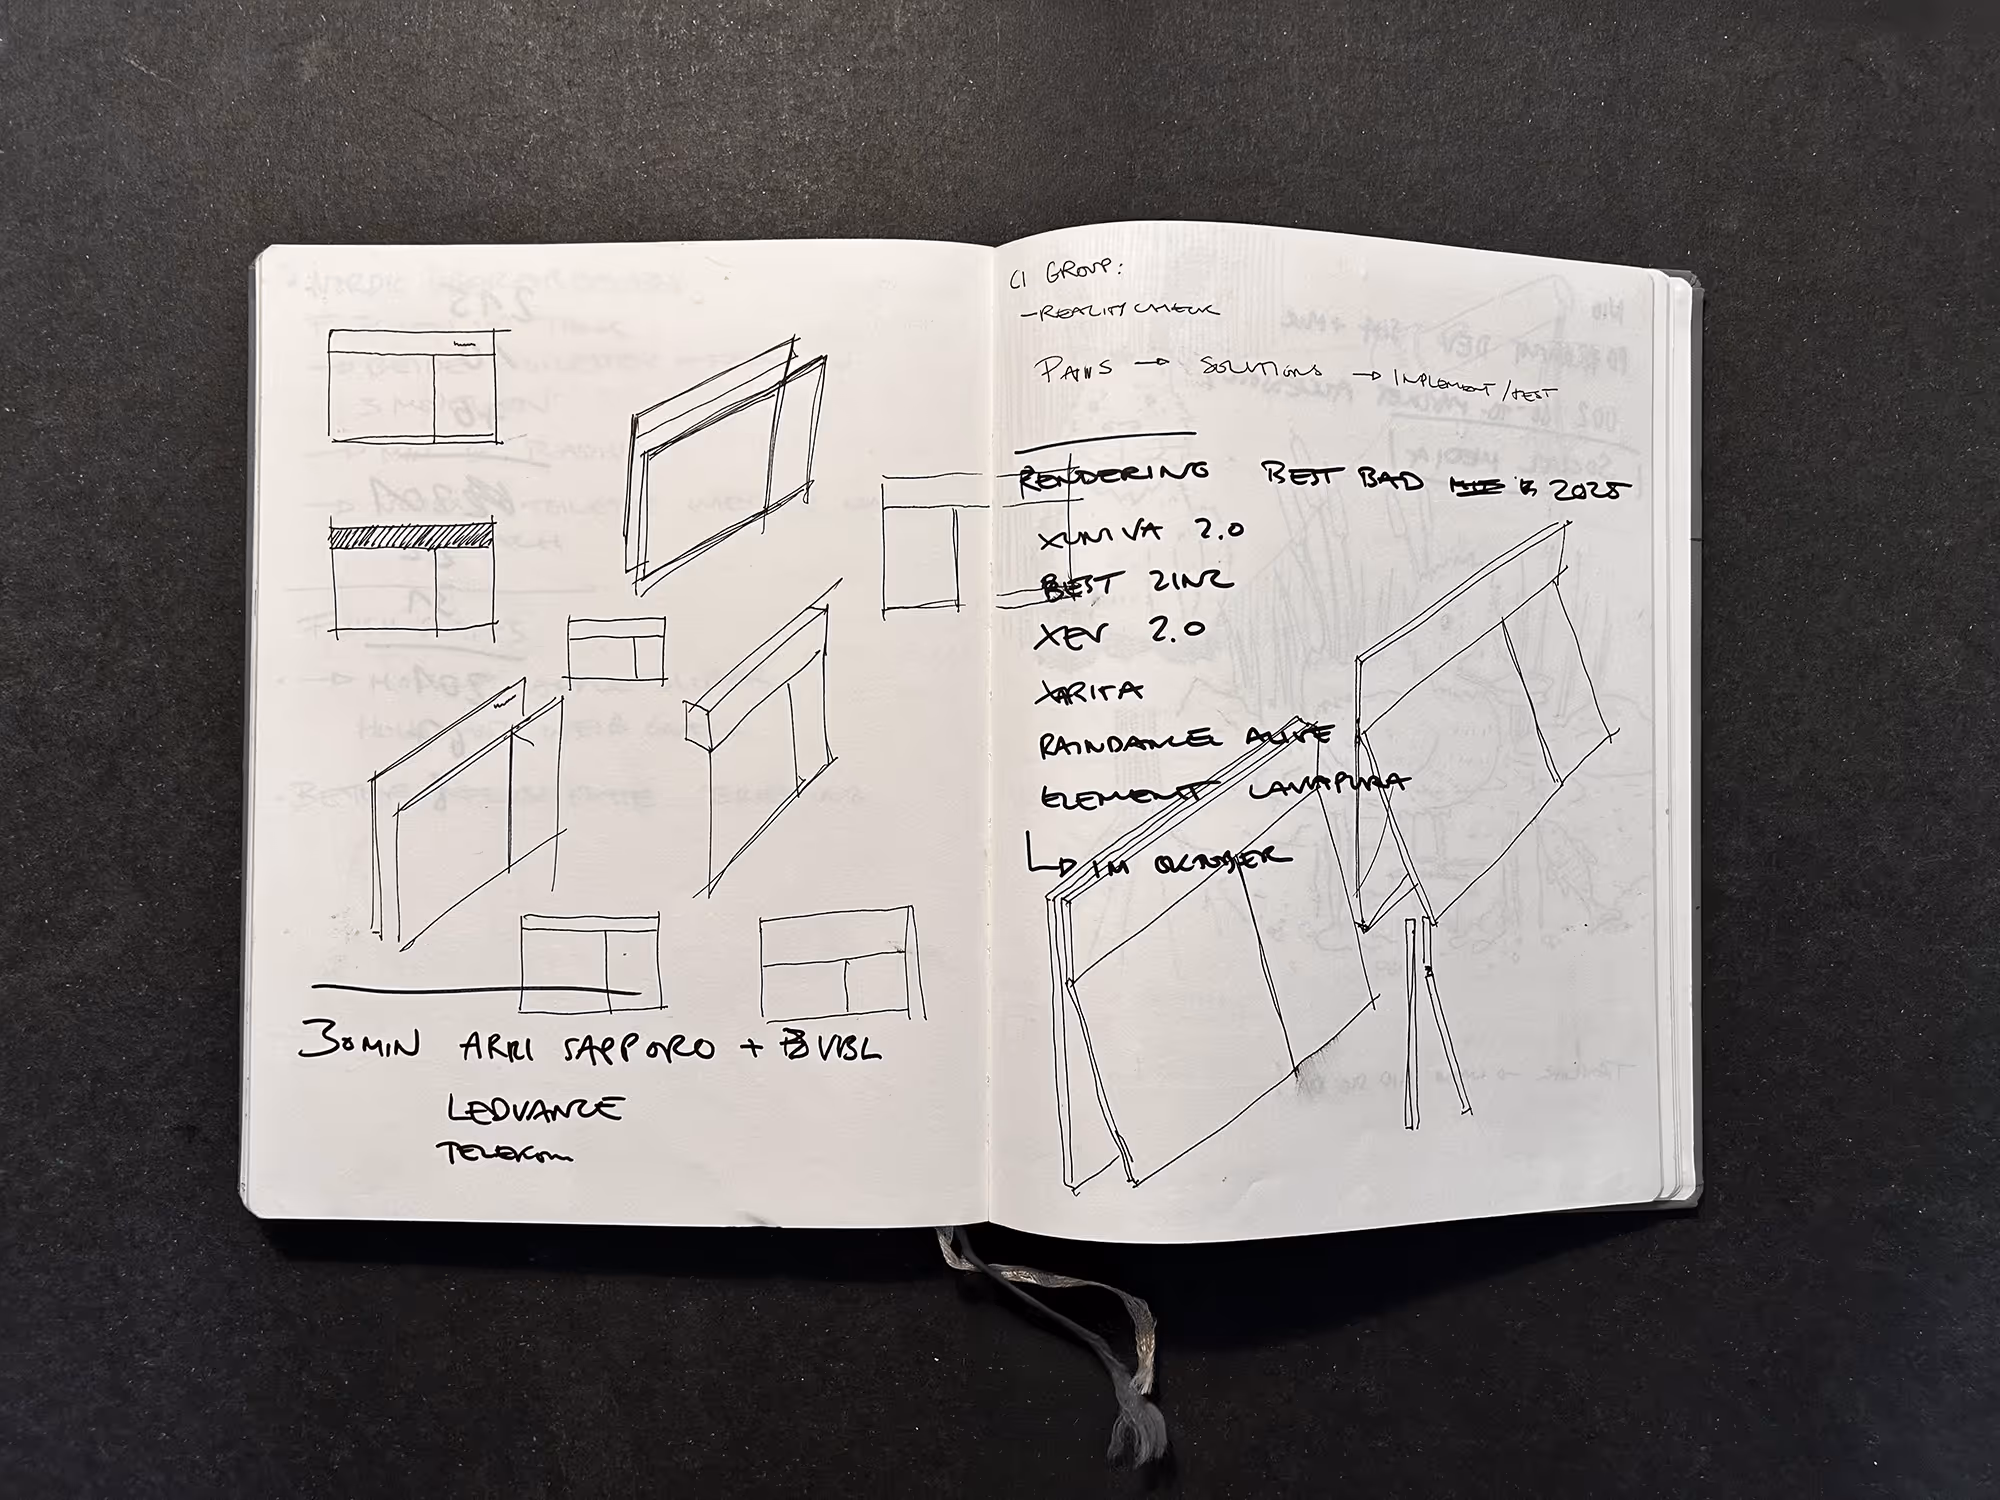 30MIN ARRI SAPPORO + VBL
LEDVANCE
TELEKOM
CI GROUP:
- REALITY CHECK
PAINS → SOLUTIONS → IMPLEMENT/TEST
RENDERING BEST BAD 2025
XUNIVA 2.0
BEST
XEV 2.0
XARITA
RAINDANCE ALIVE
ELEMENT
↳ IM OKTOBER